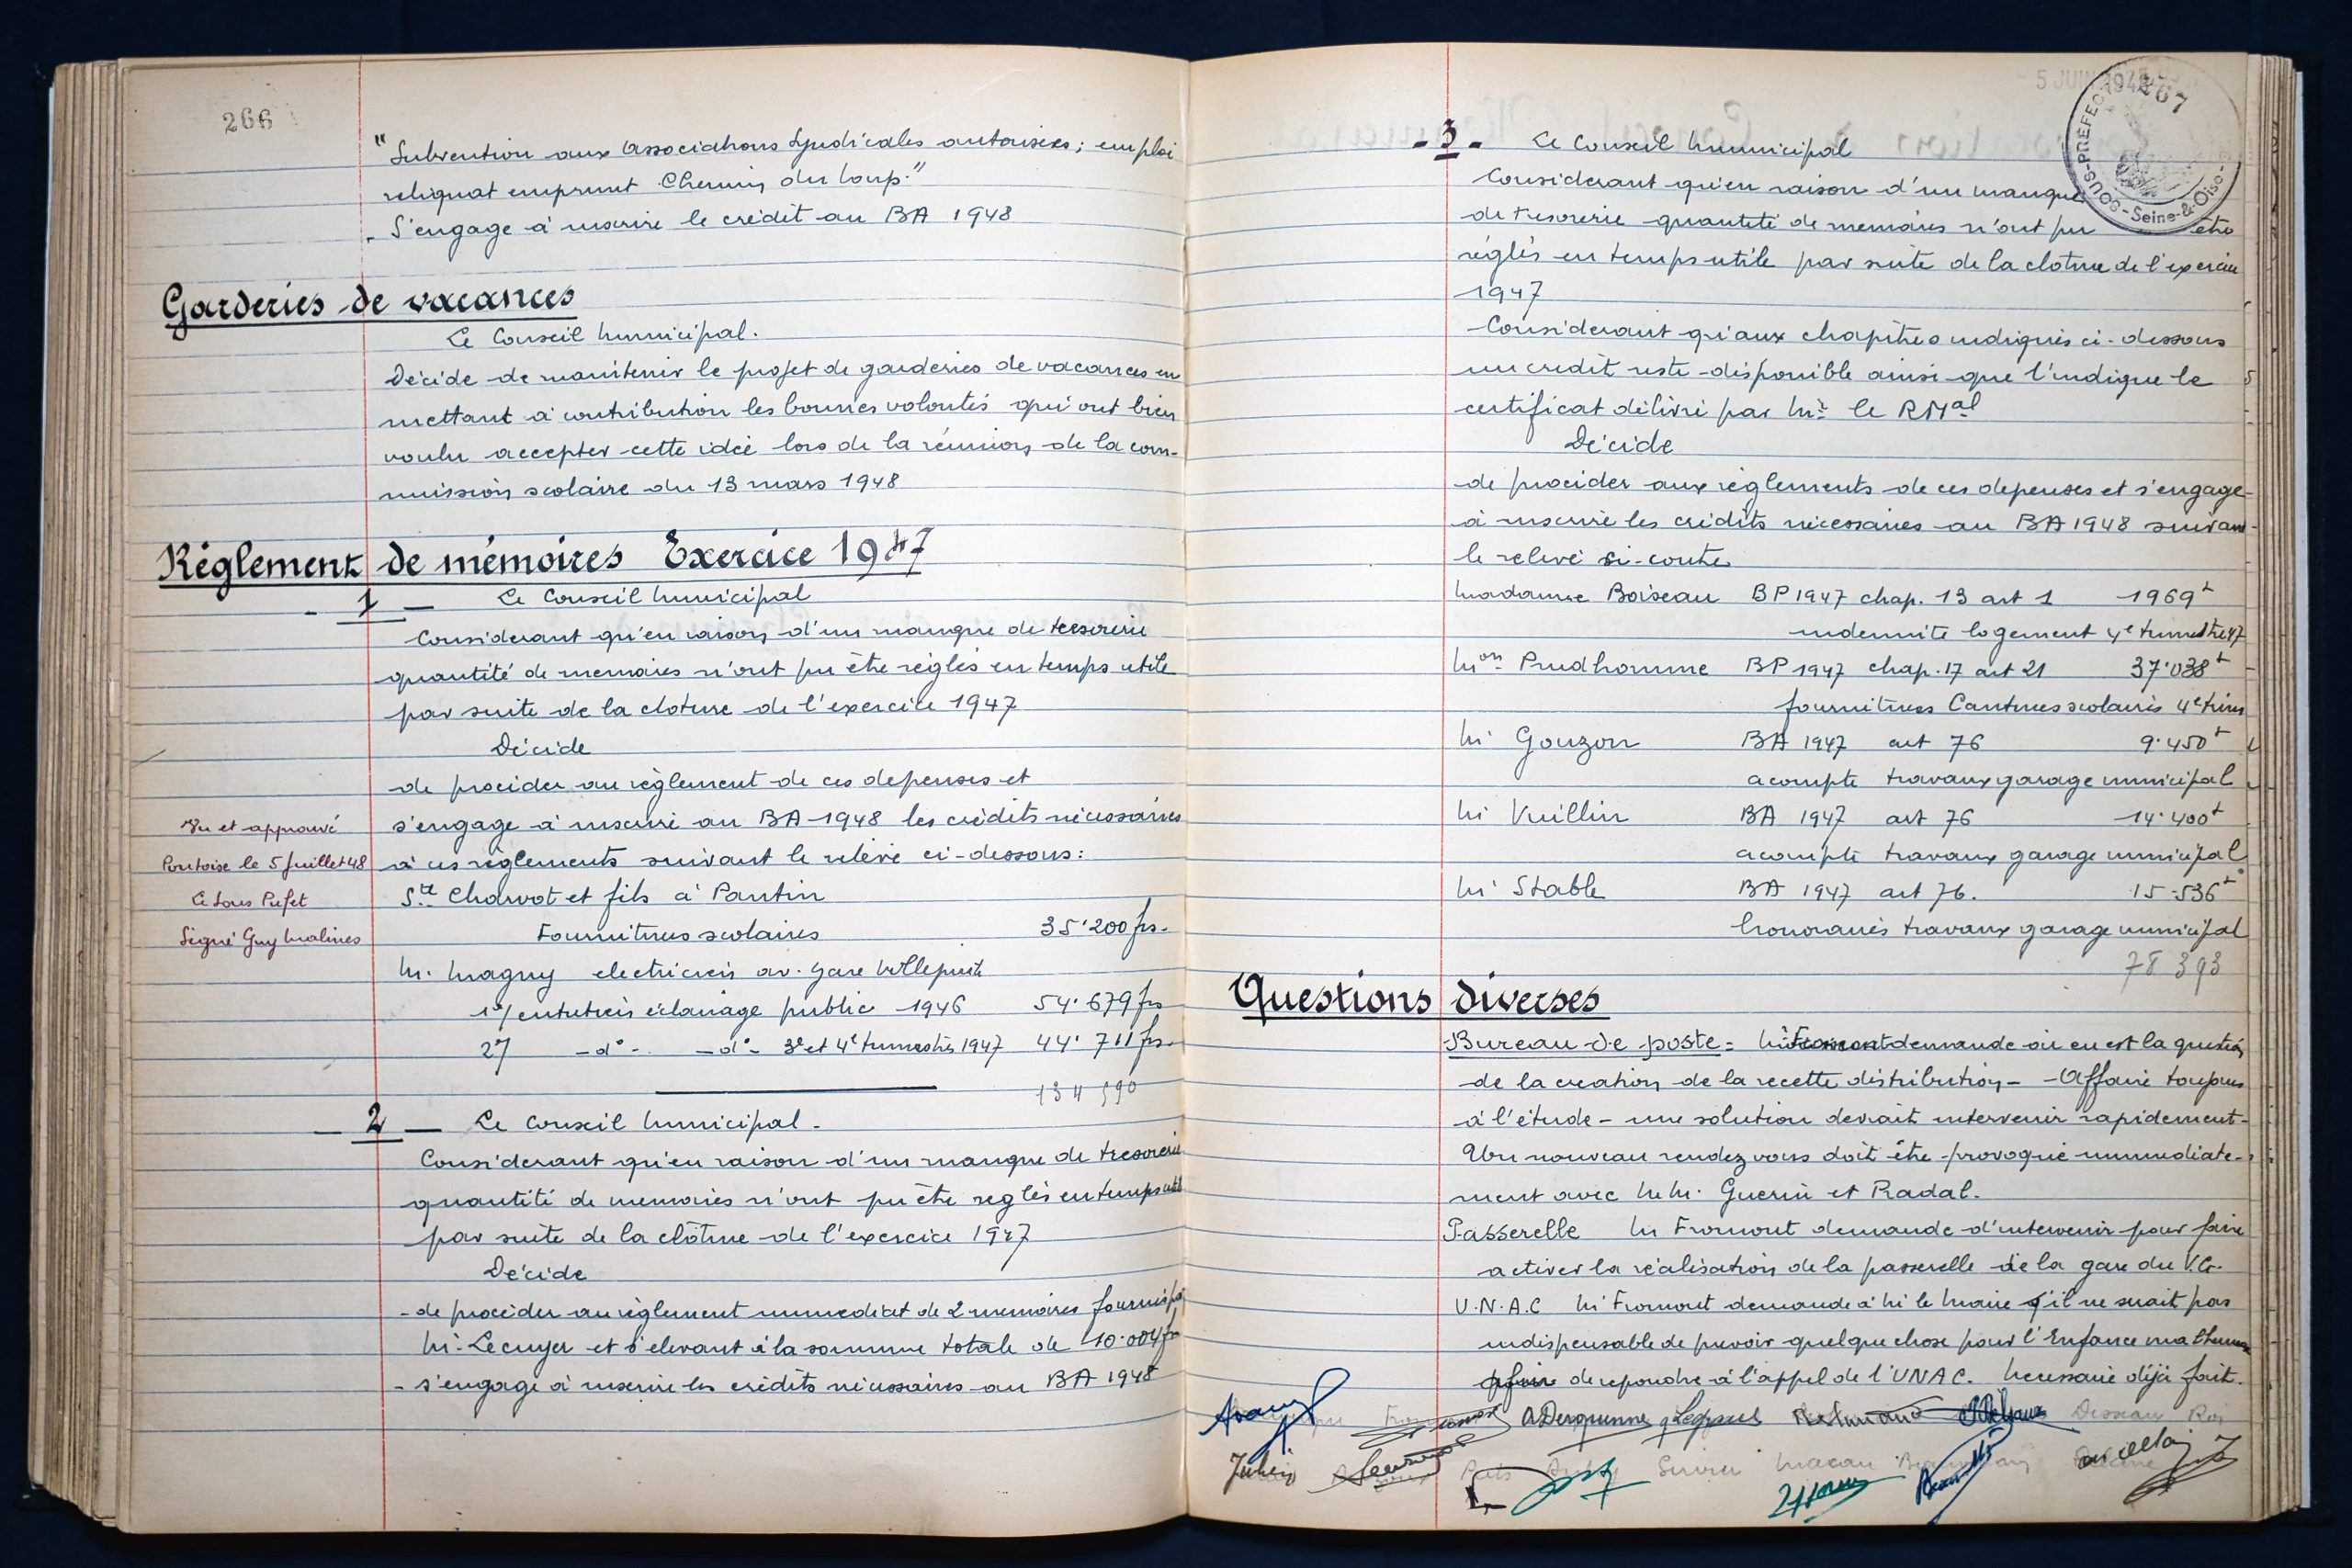 266
"Subvention aux Associations Syndicales autorisées ; emploi
reliquat emprunt Chemin du loup."
S'engage à inscrire le crédit au BA 1948
Garderies de vacances
Le Conseil Municipal.
Décide de maintenir le projet de garderies de vacances en
mettant à contribution les bonnes volontés qui ont bien
voulu accepter cette idée lors de la réunion de la com-
mission scolaire du 13 mars 1948
Réglement de mémoires Exercice 1947
- 1 - Le Conseil Municipal
Considerant qu'en raison d'un manque de tresorerie
quantité de memoires n'ont pu être réglés en temps utile
par suite de la cloture de l'exercice 1947
Décide
de procéder au règlement de ces depenses et
s'engage à inscrire au BA 1948 les crédits nécessaires
à ces règlements suivant le relevé ci-dessous :
Vu et approuvé
Pontoise le 5 Juillet 48
Le Sous Préfet
Signé Guy Molines
Sté Charvot et fils à Pantin
Fournitures scolaires 35'200 frs.
M. Magny electricien av. gare
1°/ entretien éclairage public 1946 54'679 frs
2°/ -d°- -d°- 3e et 4e trimestres 1947 44'711 frs.
134 590
- 2 - Le Conseil Municipal.
Considerant qu'en raison d'un manque de tresorerie
quantité de memoires n'ont pu être reglés en temps utile
par suite de la clôture de l'exercice 1947
Décide
- de procéder au règlement immediat de 2 memoires fournis par
Mr Lecuyer et s'elevant à la somme totale de 10'004 frs
- s'engage à inscrire les crédits nécessaires au BA 1948
5 JUIN 1948
267
SOUS-PRÉFECTURE
Seine-&-Oise
- 3 - Le Conseil Municipal
Considerant qu'en raison d'un manque
de tresorerie quantité de memoires n'ont pu être
réglés en temps utile par suite de la cloture de l'exercice
1947
Considerant qu'aux chapitres indiqués ci-dessous
un credit reste disponible ainsi que l'indique le
certificat délivré par Mr le RMal
Décide
de procéder aux règlements de ces depenses et s'engage
à inscrire les crédits nécessaires au BA 1948 suivant
le relevé ci-contre
Madame Boiseau BP 1947 chap. 13 art 1 1969f
indemnité logement 4e trimestre 47
Mon Prudhomme BP 1947 chap. 17 art 21 37'038f
fournitures Cantines scolaires 4e trim
Mr Gouzon BA 1947 art 76 9'450f
acompte travaux garage municipal
Mr Vuillin BA 1947 art 76 14'400f
acompte travaux garage municipal
Mr Stable BA 1947 art 76. 15'536f
honoraires travaux garage municipal
78 393
Questions diverses
Bureau de poste = Mr Fromont demande où en est la question
de la création de la recette distribution - Affaire toujours
à l'étude - une solution devrait intervenir rapidement -
Un nouveau rendez vous doit être provoqué immédiate-
ment avec M.M. Guerin et Radal.
Passerelle Mr Fromont demande d'intervenir pour faire
activer la réalisation de la passerelle de la gare du V.G.
U.N.A.C Mr Fromont demande à Mr le Maire s'il ne serait pas
indispensable de prevoir quelque chose pour l'Enfance malheureuse
de repondre à l'appel de l'UNAC. Necessaire déjà fait.